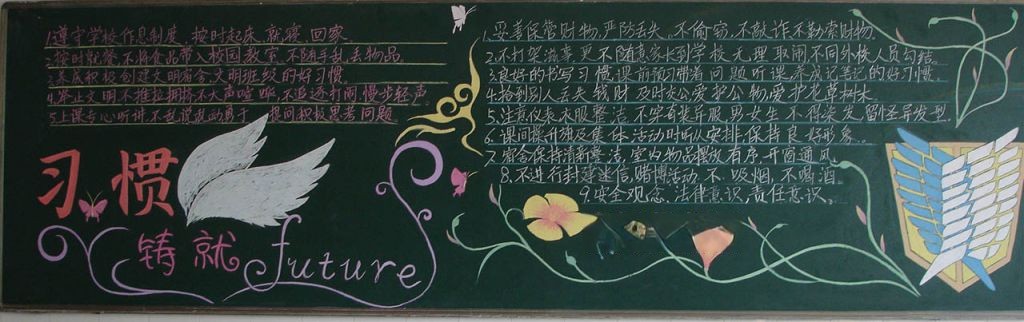 1.遵守学校作息制度,按时起床,就寝,回家.
2.按时就餐,不将食品带入校园教室,不随手乱丢物品.
3.养成积极创建文明宿舍,文明班级的好习惯.
4.举止文明,不推拉拥挤,不大声喧哗,不追逐打闹,慢步轻声.
5.上课专心听讲,不乱说乱动,勇于提问积极思考问题.
习惯
铸就future
1.妥善保管财物,严防丢失,不偷窃,不敲诈不勒索财物.
2.不打架滋事,更不随意家长到学校无理取闹,不同外校人员勾结.
3.良好的书写习惯,课前预习带着问题听课,养成记笔记的好习惯.
4.拾到别人丢失钱财及时交公,爱护公物,爱护花草树木.
5.注意仪表,衣服整洁,不穿奇装异服,男女生不得染发,留怪异发型.
6.课间操升旗及集体活动时听从安排,保持良好形象.
7.宿舍保持清新整洁,室内物品摆放有序,开窗通风.
8.不进行封建迷信,赌博活动,不吸烟,不喝酒.
9.安全观念,法律意识,责任意识.